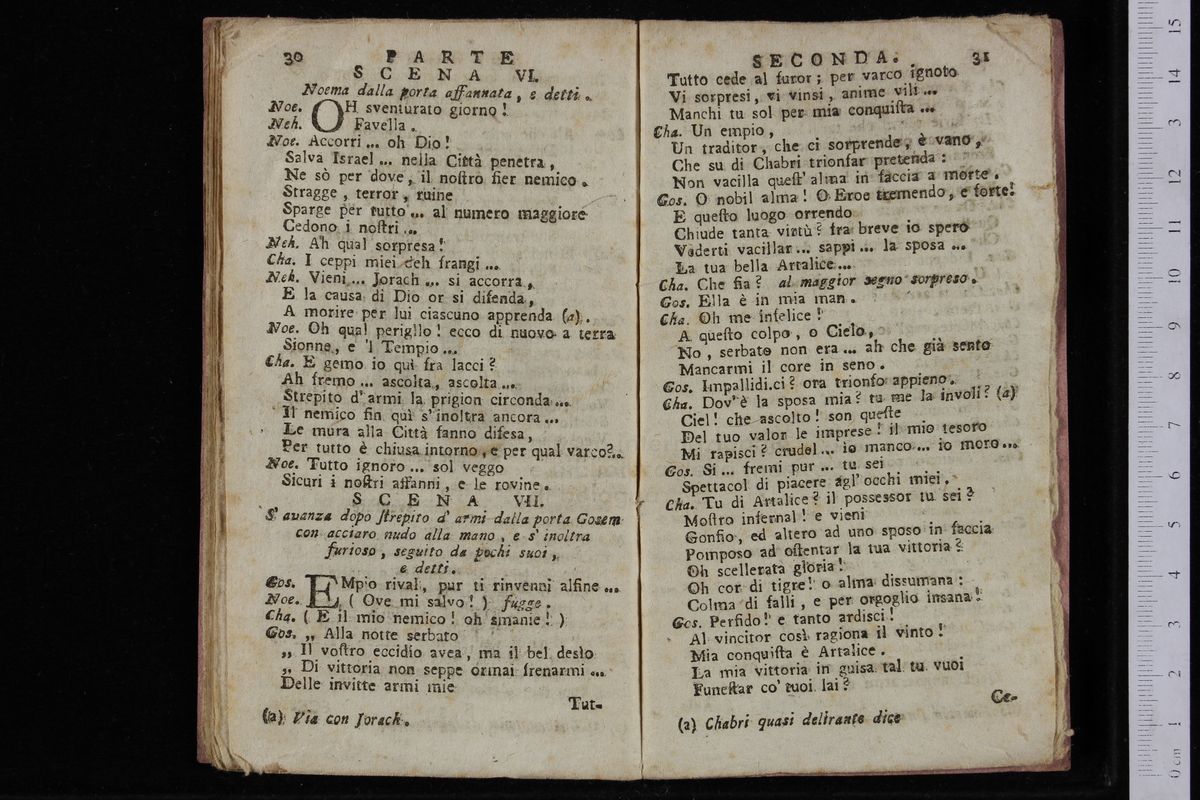 30 PARTE
SCENA VI.
Noema dalla porta affannata, e detti.
Noe. OH sventurato giorno!
Neh. Favella.
Noe. Accorri... oh Dio!
Salva Israel... nella Città penetra,
Ne sò per dove, il noſtro fier nemico.
Stragge, terror, ruine
Sparge per tutto... al numero maggiore
Cedono i noſtri...
Neh. Ah qual sorpresa!
Cha. I ceppi miei deh frangi...
Neh. Vieni... Jorach... si accorra,
E la causa di Dio or si difenda,
A morire per lui ciascuno apprenda (a).
Noe. Oh qual periglio! ecco di nuovo a terra
Sionne, e 'l Tempio...
Cha. E gemo io quì fra lacci?
Ah fremo... ascolta, ascolta...
Strepito d'armi la prigion circonda...
Il nemico fin quì s'inoltra ancora...
Le mura alla Città fanno difesa,
Per tutto è chiusa intorno, e per qual varco?...
Noe. Tutto ignoro... sol veggo
Sicuri i noſtri affanni, e le rovine.
SCENA VII.
S'avanza dopo ſtrepito d'armi dalla porta Gosem
con acciaro nudo alla mano, e s'inoltra
furioso, seguito da pochi suoi,
e detti.
Gos. EMpio rival, pur ti rinvenni alfine...
Noe. (Ove mi salvo!) fugge.
Cha. (E il mio nemico! oh smanie!)
Gos. „ Alla notte serbato
„ Il voſtro eccidio avea, ma il bel desìo
„ Di vittoria non seppe ormai frenarmi...
Delle invitte armi mie
Tut-
(a) Via con Jorach.
SECONDA. 31
Tutto cede al furor; per varco ignoto
Vi sorpresi, vi vinsi, anime vili...
Manchi tu sol per mia conquiſta...
Cha. Un empio,
Un traditor, che ci sorprende, è vano,
Che su di Chabri trionfar pretenda:
Non vacilla queſt'alma in faccia a morte.
Gos. O nobil alma! O Eroe tremendo, e forte!
E queſto luogo orrendo
Chiude tanta virtù? fra breve io spero
Vederti vacillar... sappi... la sposa...
La tua bella Artalice...
Cha. Che fia? al maggior segno sorpreso.
Gos. Ella è in mia man.
Cha. Oh me infelice!
A queſto colpo, o Cielo,
No, serbato non era... ah che già sento
Mancarmi il core in seno.
Gos. Impallidi.ci? ora trionfo appieno.
Cha. Dov'è la sposa mia? tu me la involi? (a)
Ciel! che ascolto! son queſte
Del tuo valor le imprese! il mio tesoro
Mi rapisci? crudel... io manco... io moro...
Gos. Si... fremi pur... tu sei
Spettacol di piacere agl'occhi miei.
Cha. Tu di Artalice? il possessor tu sei?
Moſtro infernal! e vieni
Gonfio, ed altero ad uno sposo in faccia
Pomposo ad oſtentar la tua vittoria?
Oh scellerata gloria!
Oh cor di tigre! o alma dissumana:
Colma di falli, e per orgoglio insana!
Gos. Perfido! e tanto ardisci!
Al vincitor così ragiona il vinto!
Mia conquiſta è Artalice.
La mia vittoria in guisa tal tu vuoi
Funeſtar co' tuoi lai?
Ce-
(a) Chabri quasi delirante dice